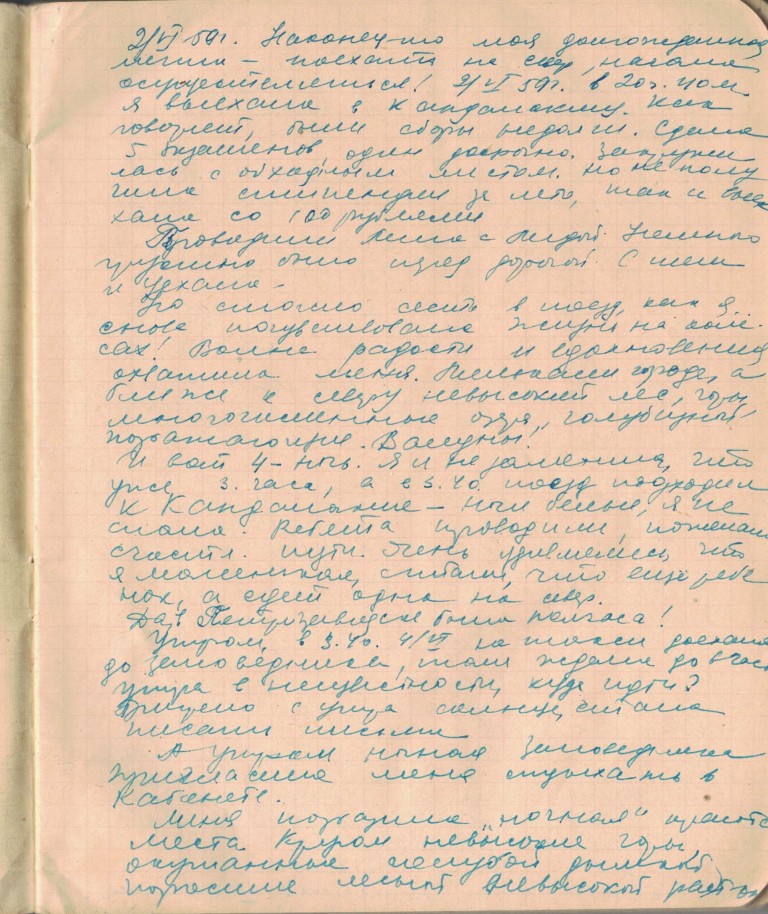 2/VI 59г. Наконец-то моя долгожданная
мечта – поехать на север, начала
осуществляться! 2/VI 59г. в 20ч. 40м.
я выехала в Кандалакшу. Как
говорят, были сборы недолги. Сдала
5 экзаменов, один досрочно.
лась с обходным листом. но не полу
чила стипендии за лето, так и выех
хала со 100 рублями
Проводили Лина с Лидой. Немного
грустно было перед дорогой. С тем
и уехала –
Но стоило сесть в поезд, как я
снова почувствовала жизнь на колё-
сах! Волна радости и вдохновения
охватила меня. Мелькали города, а
ближе к северу невысокий лес, горы,
многочисленные озера, голубизной
поражающие. Валуны!
И вот 4-ночь. Я и не заметила, что
уже 3 часа, а в 3.40 поезд подходил
к Кандалакше – ночи белые, я не
спала. Ребята проводили, пожелали
счастл. пути. Очень удивлялись, что
я маленькая, считали, что еще ребе
нок, а едет одна на север.
Да, в Петрозаводске была полчаса!
Утром, в 3.40. 4/VI на такси доехала
до заповедника, там ждала до 8 час
утра в неизвестности, куда идти?
с утра солнце, стала
писать письма
А утром ночная
пригласила меня отдыхать в
кабинете.
Меня поразила „ночная" красота
места Кругом невысокие горы,
окутанные голубой дымкой,
поросшие лесом невысокой